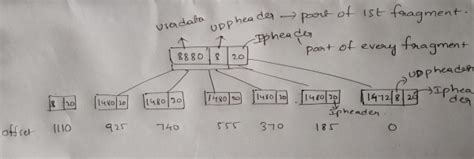 userdata UDPheader → part of 1st fragment.
Ipheader
part of every fragment
8880 8 20
UDpheader
8 20 1480 20 1480 20 1480 20 1480 20 1480 20 1472 8 20 Ipheader
Ipheader
offset 1110 925 740 555 370 185 0